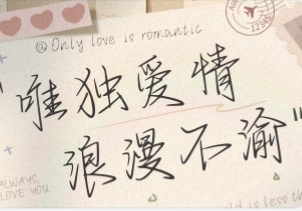 @ Only love is romantic
"唯独爱情
浪漫不渝"
ALWAYS,
LOVE YOU
ld is less th
12345